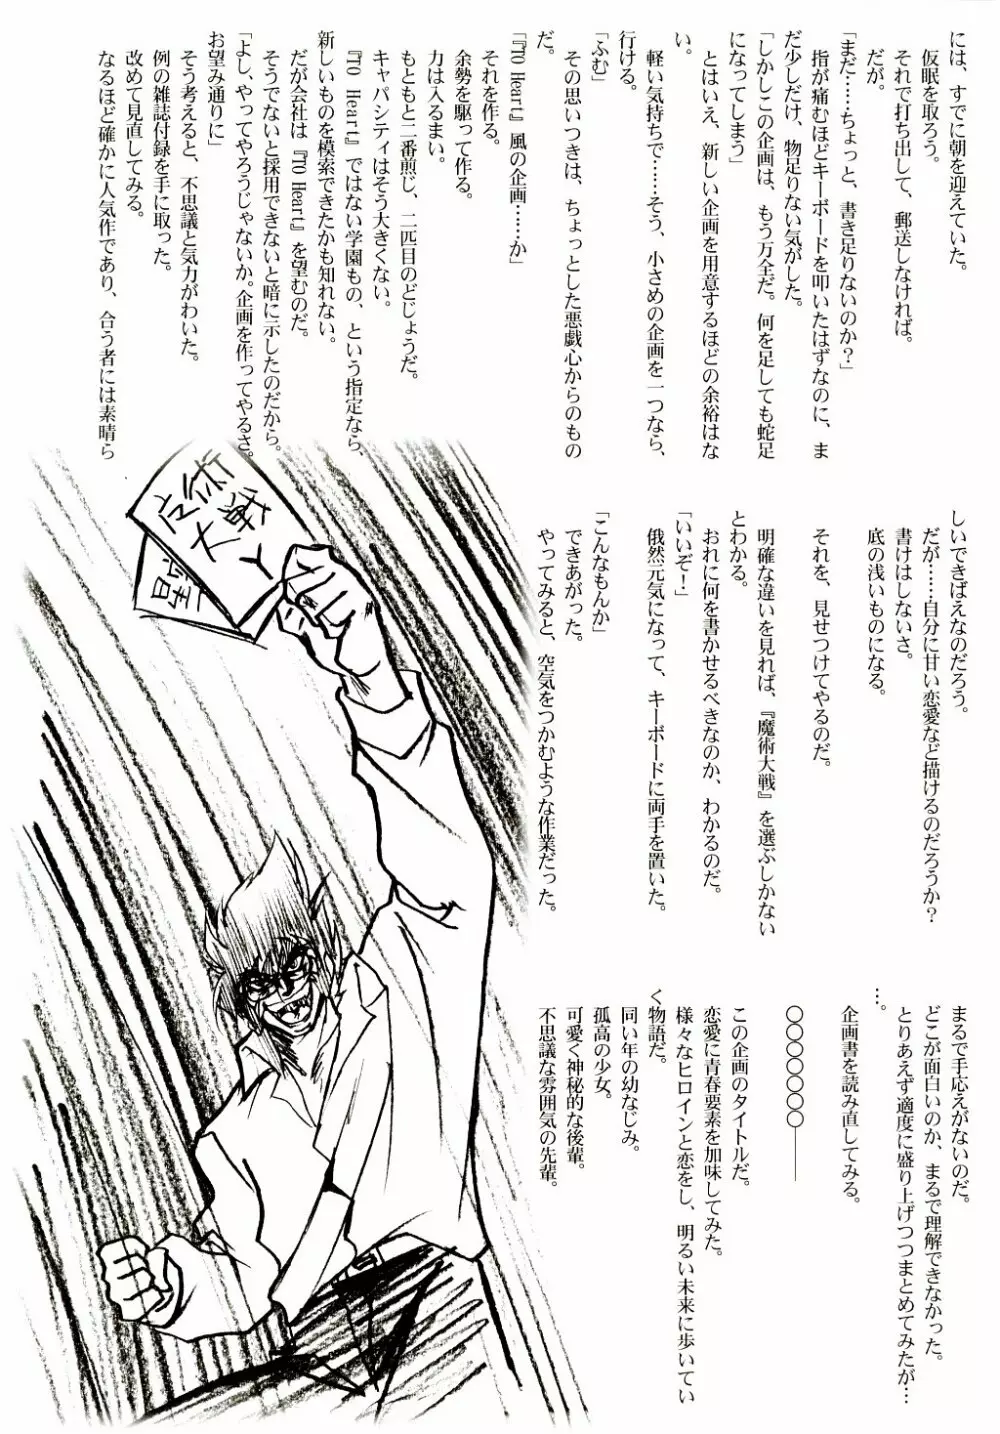 には、すでに朝を迎えていた。
仮眠を取ろう。
それで打ち出して、郵送しなければ。
だが。
「まだ……ちょっと、書き足りないのか？」
指が痛むほどキーボードを叩いたはずなのに、ま
だ少しだけ、物足りない気がした。
「しかしこの企画は、もう万全だ。何を足しても蛇足
になってしまう」
とはいえ、新しい企画を用意するほどの余裕はな
い。
軽い気持ちで……そう、小さめの企画を一つなら、
行ける。
「ふむ」
その思いつきは、ちょっとした悪戯心からのもの
だ。
「『TO Heart』風の企画……か」
それを作る。
余勢を駆って作る。
力は入るまい。
もともと二番煎じ、二匹目のどじょうだ。
キャパシティはそう大きくない。
『TO Heart』ではない学園もの、という指定なら、
新しいものを模索できたかも知れない。
だが会社は『TO Heart』を望むのだ。
そうでないと採用できないと暗に示したのだから。
「よし、やってやろうじゃないか。企画を作ってやるさ。
お望み通りに」
そう考えると、不思議と気力がわいた。
例の雑誌付録を手に取った。
改めて見直してみる。
なるほど確かに人気作であり、合う者には素晴ら
しいできばえなのだろう。
だが……自分に甘い恋愛など描けるのだろうか？
書けはしないさ。
底の浅いものになる。
それを、見せつけてやるのだ。
明確な違いを見れば、『魔術大戦』を選ぶしかない
とわかる。
おれに何を書かせるべきなのか、わかるのだ。
「いいぞ！」
俄然元気になって、キーボードに両手を置いた。
「こんなもんか」
できあがった。
やってみると、空気をつかむような作業だった。
まるで手応えがないのだ。
どこが面白いのか、まるで理解できなかった。
とりあえず適度に盛り上げつつまとめてみたが…
…。
企画書を読み直してみる。
〇〇〇〇〇〇〇――
この企画のタイトルだ。
恋愛に青春要素を加味してみた。
様々なヒロインと恋をし、明るい未来に歩いてい
く物語だ。
同い年の幼なじみ。
孤高の少女。
可愛く神秘的な後輩。
不思議な雰囲気の先輩。